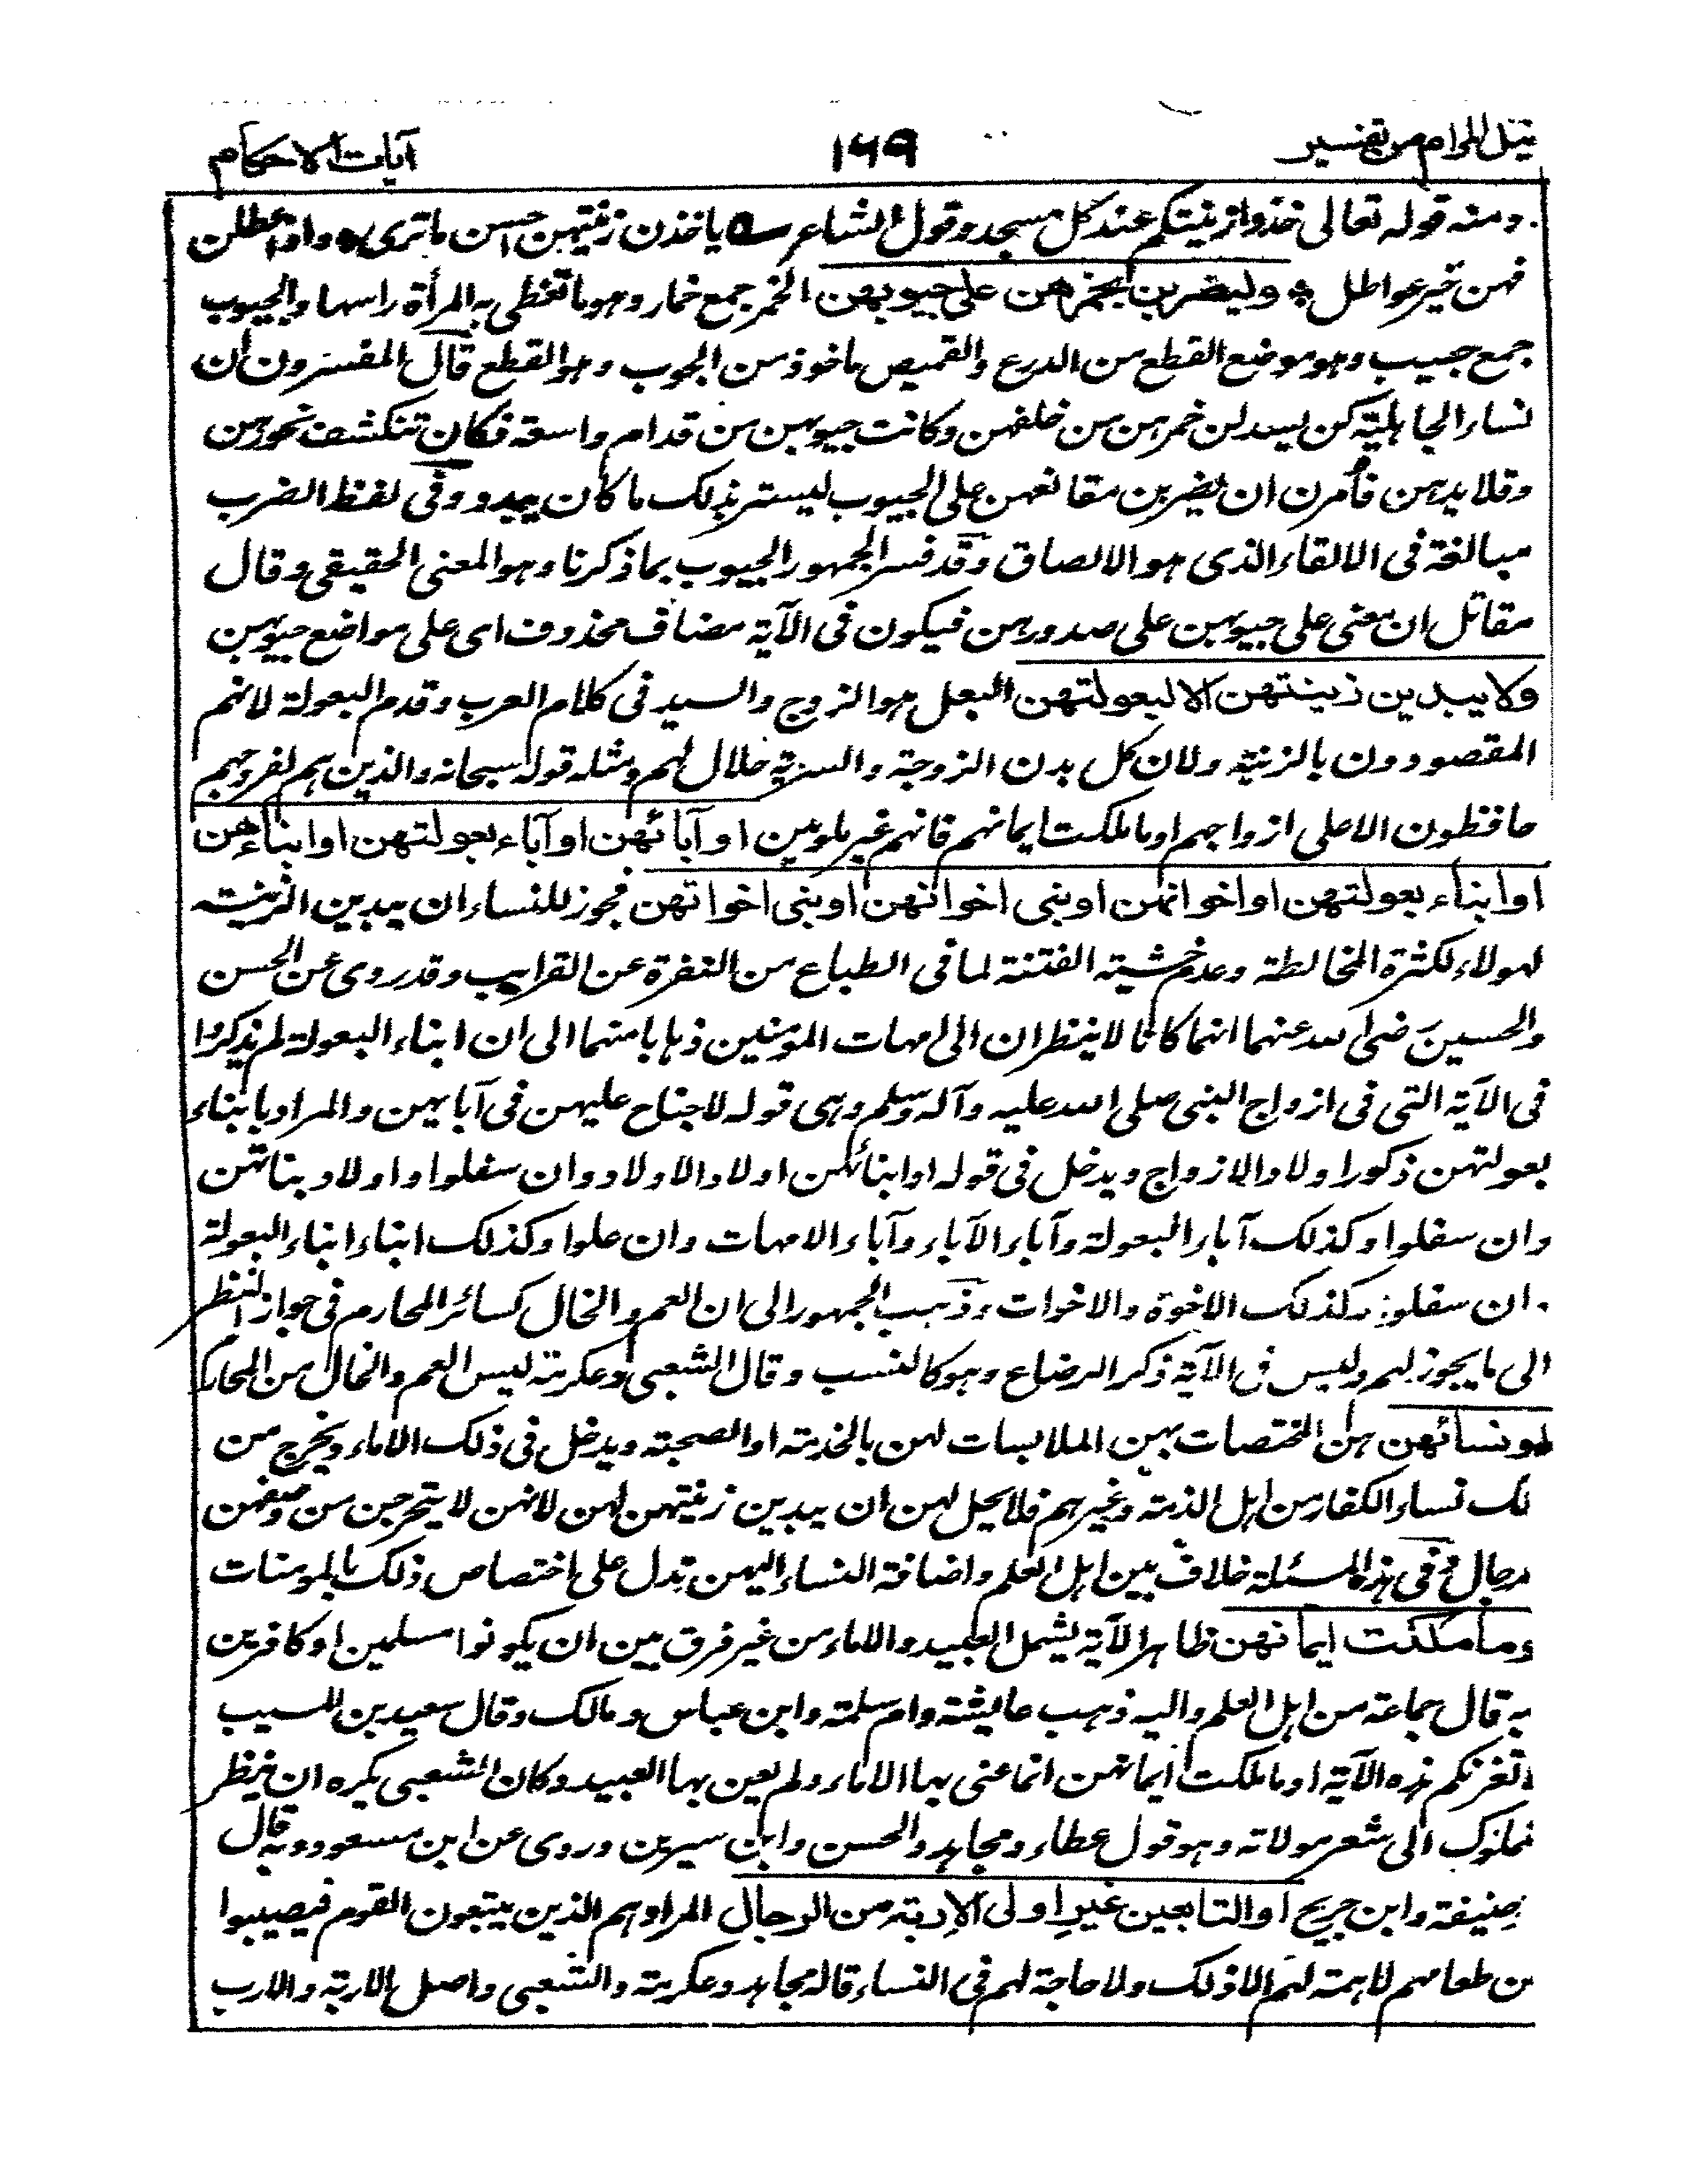 نيل المرام من تفسير ١٦٩ آيات الاحكام
ومنه قوله تعالى خذوا زينتكم عند كل مسجد وقول الشاعر ـه ياخذن زينتهن احسن ما ترى * واذا عطلن
فهن خير عواطل * وليضربن بخمرهن على جيوبهن الخمر جمع خمار وهو ما تغطى به المرأة راسها والجيوب
جمع جيب وهو موضع القطع من الدرع والقميص ماخوذ من الجوب وهو القطع قال المفسرون ان
نساء الجاهلية كن يسدلن خمرهن من خلفهن وكانت جيوبهن من قدام واسعة فكان تنكشف نحورهن
وقلايدهن فأمرن ان يضربن مقانعهن على الجيوب ليستر بذلك ما كان يبدو وفى لفظ الضرب
مبالغة فى الالقاء الذى هو الالصاق وقد فسر الجمهور الجيوب بما ذكرنا وهو المعنى الحقيقى وقال
مقاتل ان معنى على جيوبهن على صدورهن فيكون فى الآية مضاف محذوف اى على مواضع جيوبهن
ولا يبدين زينتهن الا لبعولتهن البعل هو الزوج والسيد فى كلام العرب وقدم البعولة لانهم
المقصودون بالزينة ولان كل بدن الزوجة والسرية حلال لهم ومثله قوله سبحانه والذين هم لفروجهم
حافظون الا على ازواجهم او ما ملكت ايمانهم فانهم غير ملومين او آبائهن او آباء بعولتهن او ابناءهن
او ابناء بعولتهن او اخوانهن او بنى اخوانهن او بنى اخواتهن فجوز للنساء ان يبدين الزينة
لهولاء لكثرة المخالطة وعدم خشية الفتنة لما فى الطباع من النفرة عن القرايب وقد روى عن الحسن
والحسين رضى الله عنهما انهما كانا لا ينظران الى امهات المؤمنين ذهابا منهما الى ان ابناء البعولة لم يذكروا
فى الآية التى فى ازواج النبى صلى الله عليه وآله وسلم وهى قوله لا جناح عليهن فى آبايهن والمراد بابناء
بعولتهن ذكور اولاد الازواج ويدخل فى قوله او ابنائهن اولاد الاولاد وان سفلوا واولاد بناتهن
وان سفلوا وكذلك آباء البعولة وآباء الآباء وآباء الامهات وان علوا وكذلك ابناء ابناء البعولة
وان سفلوا وكذلك الاخوة والاخوات وذهب الجمهور الى ان العم والخال كسائر المحارم فى جواز النظر
الى ما يجوز لهم وليس فى الآية ذكر الرضاع وهو كالنسب وقال الشعبى وعكرمة ليس العم والخال من المحارم
او نسائهن هن المختصات بهن الملابسات لهن بالخدمة او الصحبة ويدخل فى ذلك الاماء ويخرج من
لك نساء الكفار من اهل الذمة وغيرهم فلا يحل لهن ان يبدين زينتهن لهن لانهن لا يتحرجن من وصفهن
رجال وفى هذه المسئلة خلاف بين اهل العلم واضافة النساء اليهن تدل على اختصاص ذلك بالمومنات
وما ملكت ايمانهن ظاهر الآية يشمل العبيد والاماء من غير فرق بين ان يكونوا مسلمين او كافرين
به قال جماعة من اهل العلم واليه ذهب عايشة وام سلمة وابن عباس ومالك وقال سعيد بن المسيب
تغرنكم هذه الآية او ما ملكت ايمانهن انما عنى بها الاماء ولم يعن بها العبيد وكان الشعبى يكره ان ينظر
مملوك الى شعر مولاته وهو قول عطاء ومجاهد والحسن وابن سيرين وروى عن ابن مسعود وبه قال
حنيفة وابن جريج او التابعين غير اولى الاربة من الرجال المراد هم الذين يتبعون القوم فيصيبوا
من طعامهم لا همة لهم الا ذلك ولا حاجة لهم فى النساء قاله مجاهد وعكرمة والشعبى واصل الاربة والارب